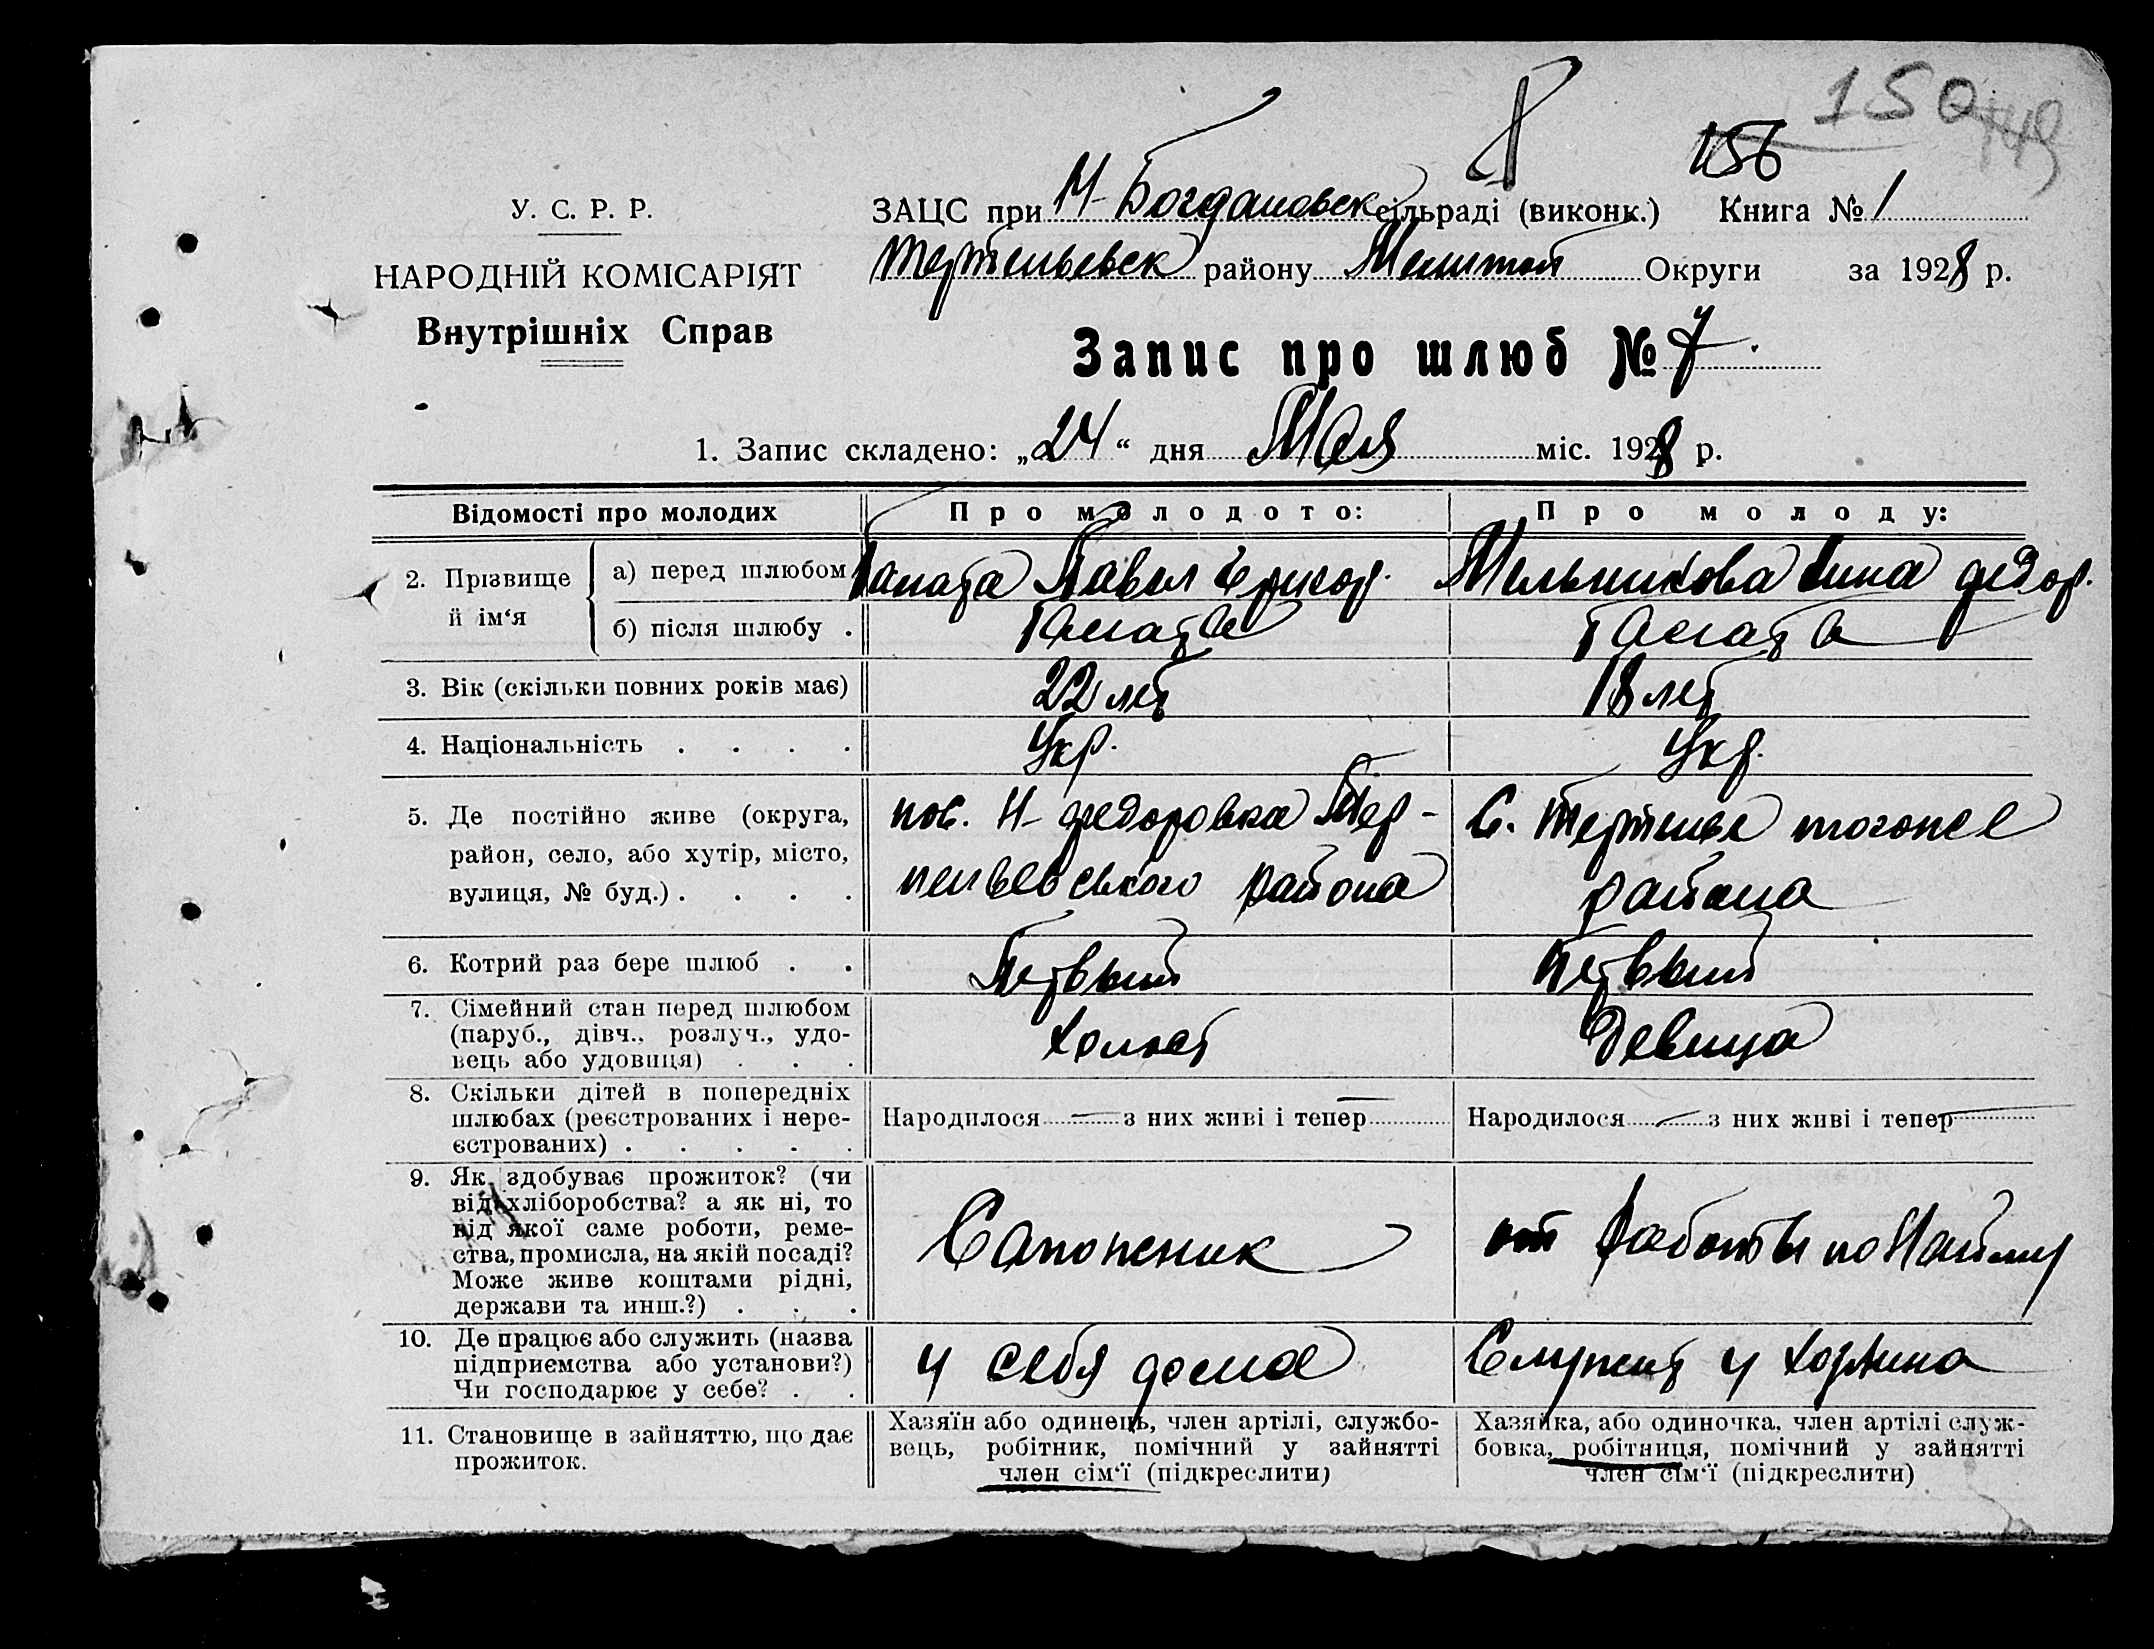 150 149
8 156
У. С. Р. Р.
ЗАЦС при М-Богдановск сільраді (виконк.) Книга № 1
НАРОДНІЙ КОМІСАРІЯТ
Внутрішніх Справ
Терпеньевск району Мелитоп Округи за 1928 р.
Запис про шлюб № 7.
1. Запис складено: „24“ дня Мая міс. 1928 р.
Відомості про молодих Про молодого: Про молоду:
2. Прізвище й ім‘я
а) перед шлюбом Павел Григор. Мельникова федор.
б) після шлюбу .
3. Вік (скільки повних років має) 22 лет 18 лет
4. Національність . . . . Укр. Укр.
5. Де постійно живе (округа, район, село, або хутір, місто, вулиця, № буд.) . . . .
пос. Н-федоровка Тер-
пеньевського района
С. Терпенье тогоже
района
6. Котрий раз бере шлюб . . Первый Первый
7. Сімейний стан перед шлюбом
(паруб., дівч., розлуч., удо-
вець або удовиця) . . . Холост Девица
8. Скільки дітей в попередніх
шлюбах (реєстрованих і нере-
єстрованих) . . . . .
Народилося — з них живі і тепер — Народилося — з них живі і тепер —
9. Як здобуває прожиток? (чи
від хліборобства? а як ні, то
від якої саме роботи, реме-
ства, промисла, на якій посаді?
Може живе коштами рідні,
держави та инш.?) . . .
Сапожник от работы по Найму
10. Де працює або служить (назва
підприємства або установи?)
Чи господарює у себе? . .
у себя дома Служит у хозяина
11. Становище в зайняттю, що дає
прожиток.
Хазяїн або одинець, член артілі, службо-
вець, робітник, помічний у зайнятті
член сім‘ї (підкреслити)
Хазяйка, або одиночка, член артілі служ-
бовка, робітниця, помічний у зайнятті
член сім‘ї (підкреслити)